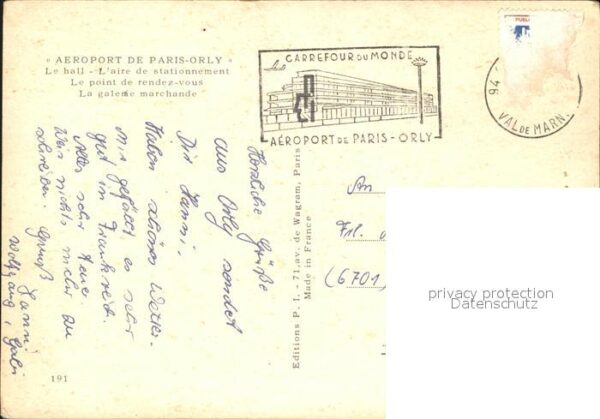 « AEROPORT DE PARIS-ORLY »
Le hall - L'aire de stationnement
Le point de rendez-vous
La galerie marchande
CARREFOUR DU MONDE
AÉROPORT DE PARIS - ORLY
94
VAL DE MARN.
Herzliche Grüße
aus Orly sendet
Dir Hanni,
Haben schönes Wetter.
Mir gefällt es sehr
gut in Frankreich.
Alles sehr teuer.
Weis nichts mehr zu
schreiben. Gruß
Wolfgang, Gabi
Editions P. I. - 71, av. de Wagram, Paris
Made in France
An
Frl.
(6701)
191
privacy protection
Datenschutz